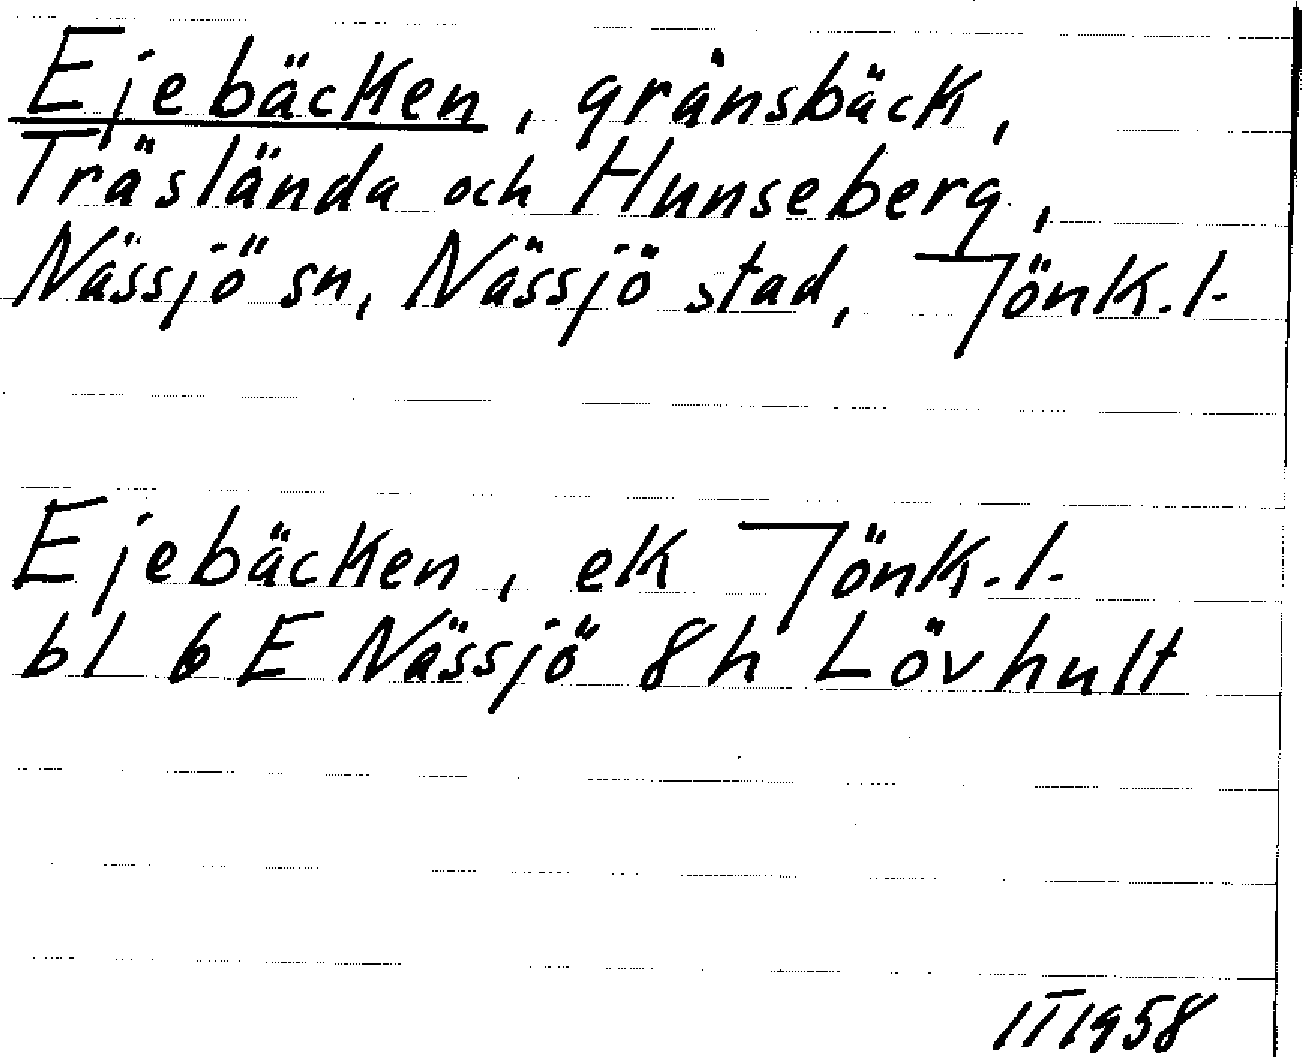 Ejebäcken, gränsbäck,
Träslända och Hunseberg,
Nässjö sn, Nässjö stad, Jönk.l.
Ejebäcken, ek Jönk.l.
bl 6E Nässjö 8h Lövhult
IT1958